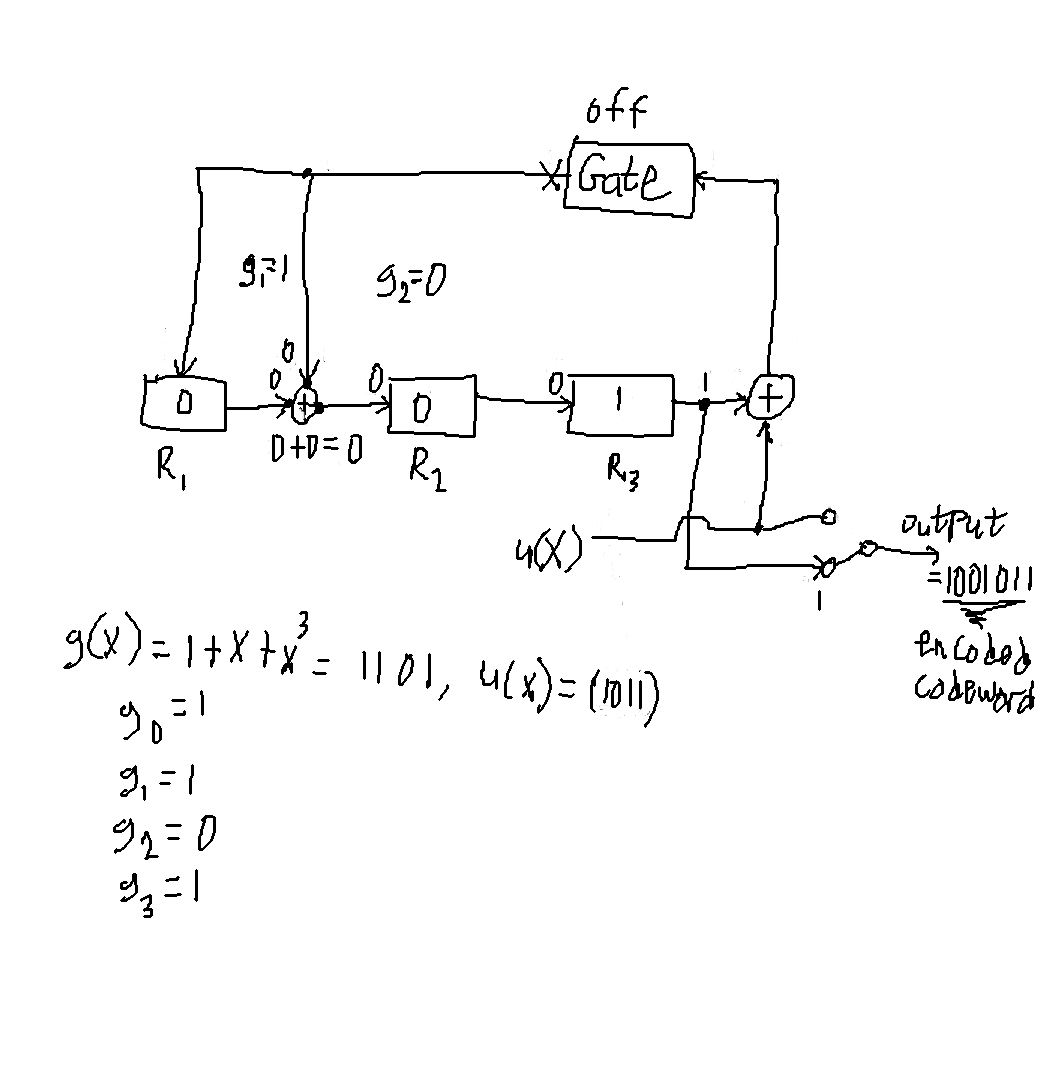 off
Gate
g₁=1
g₂=0
0
0
0
0
0
0
1
1
+
+
0+0=0
R₁
R₂
R₃
u(X)
output
1
=1001011
encoded
codeword
g(X)=1+X+X³=1101, u(X)=(1011)
g₀=1
g₁=1
g₂=0
g₃=1